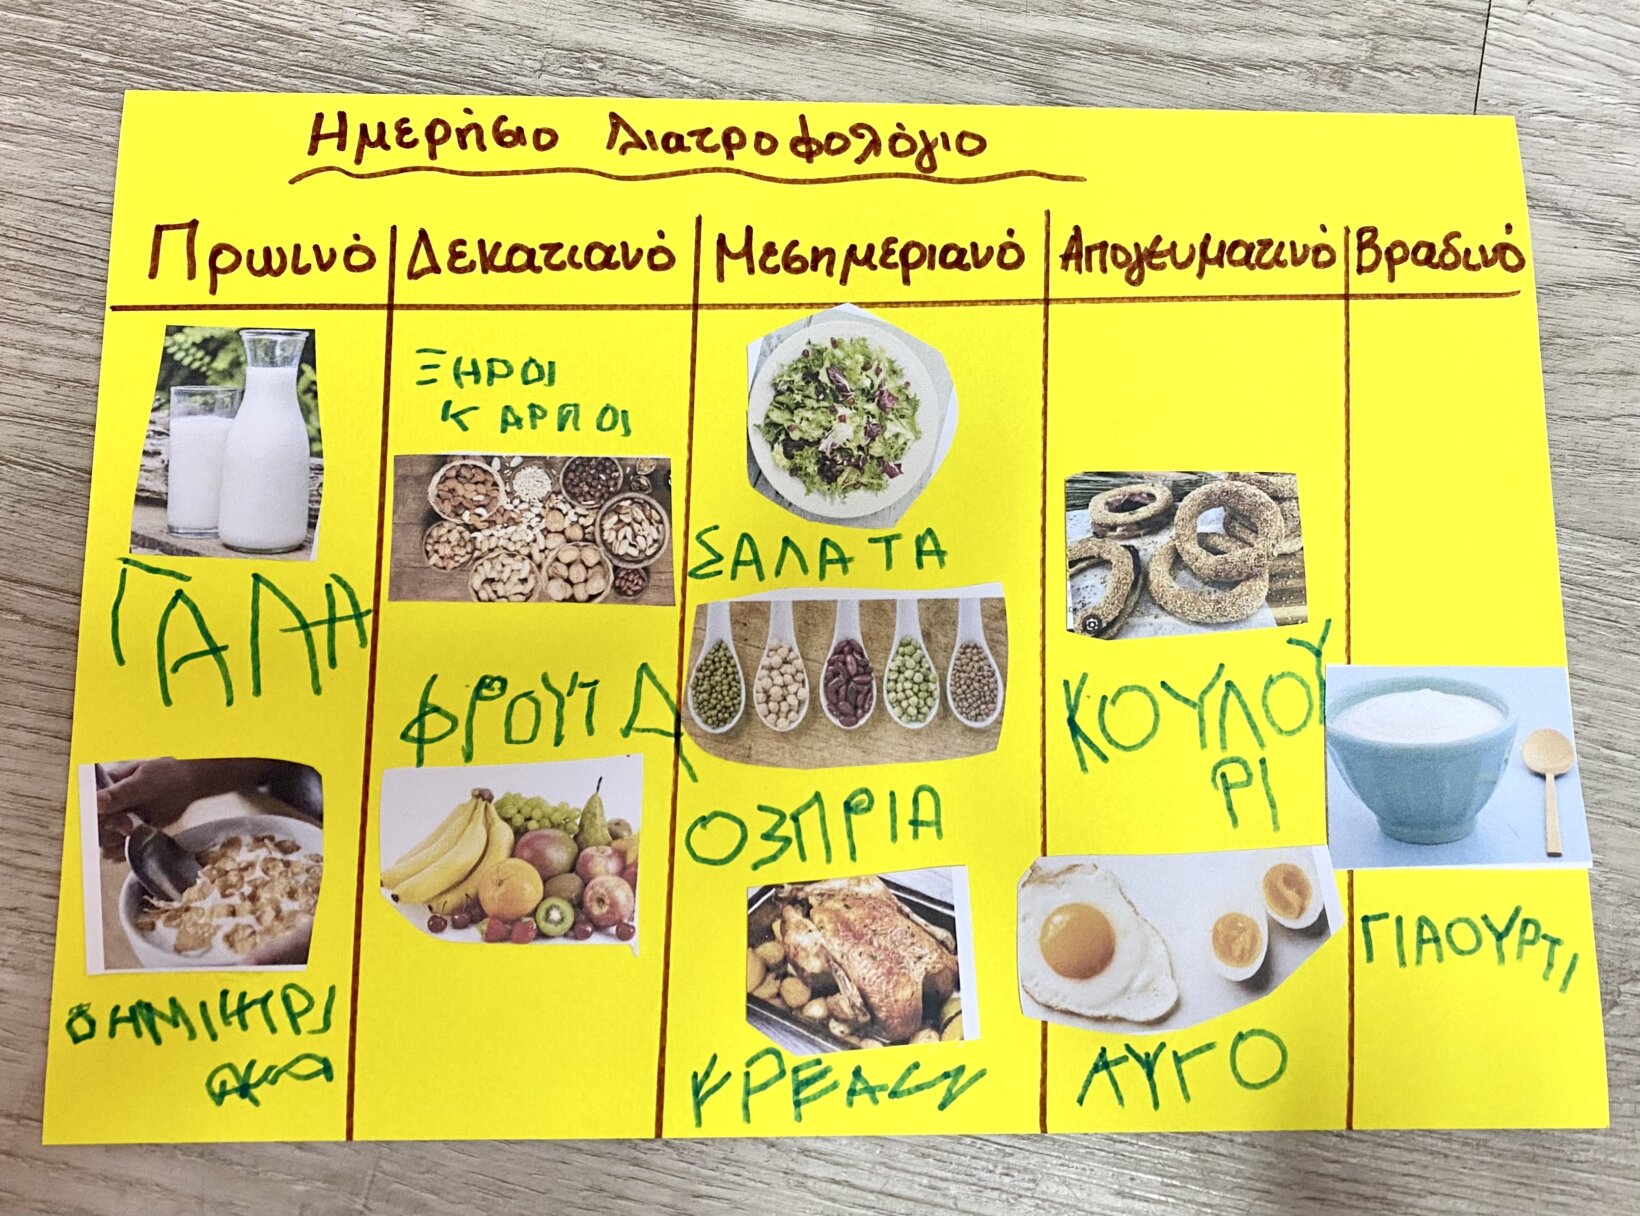 Ημερήσιο Διατροφολόγιο
Πρωινό
Δεκατιανό
Μεσημεριανό
Απογευματινό
Βραδινό
ΓΑΛΑ
ΔΗΜΗΤΡΙ
ΑΚΑ
ΞΗΡΟΙ
ΚΑΡΠΟΙ
ΦΡΟΥΤΑ
ΣΑΛΑΤΑ
ΟΣΠΡΙΑ
ΚΡΕΑΣ
ΚΟΥΛΟΥ
ΡΙ
ΑΥΓΟ
ΓΙΑΟΥΡΤΙ